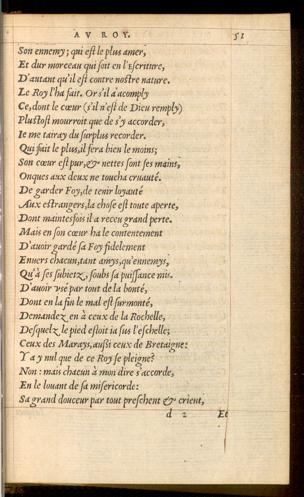 AV ROY. 51
Son ennemy; qui est le plus amer,
Et dur morceau qui soit en l'Escriture,
D'autant qu'il est contre nostre nature.
Le Roy l'ha fait. Or s'il a acomply
Ce, dont le cœur (s'il n'est de Dieu remply)
Plustost mourroit que de s'y accorder,
Ie me tairay du surplus recorder.
Qui fait le plus, il fera bien le moins;
Son cœur est pur, & nettes sont ses mains,
Onques aux deux ne toucha cruauté.
De garder Foy, de tenir loyauté
Aux estrangers, la chose est toute aperte,
Dont maintesfois il a receu grand perte.
Mais en son cœur ha le contentement
D'auoir gardé sa Foy fidelement
Enuers chacun, tant amys, qu'ennemys,
Qu'à ses subietz, soubs sa puissance mis.
D'auoir vsé par tout de la bonté,
Dont en la fin le mal est surmonté,
Demandez en à ceux de la Rochelle,
Desquelz le pied estoit ia sus l'eschelle;
Ceux des Marays, aussi ceux de Bretaigne:
Y a y nul que de ce Roy se pleigne?
Non: mais chacun à mon dire s'accorde,
En le louant de sa misericorde:
Sa grand douceur par tout preschent & crient,
d 2 Et